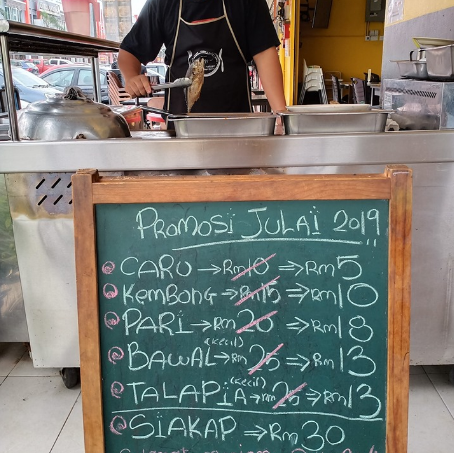 PROMOSI JULAI 2019
CARU → RM 10 ⇒ RM 5
KEMBONG → RM 15 ⇒ RM 10
PARI → RM 20 ⇒ RM 18
(KECIL)
BAWAL → RM 25 ⇒ RM 13
(KECIL)
TALAPIA → RM 25 ⇒ RM 13
SIAKAP ⇒ RM 30